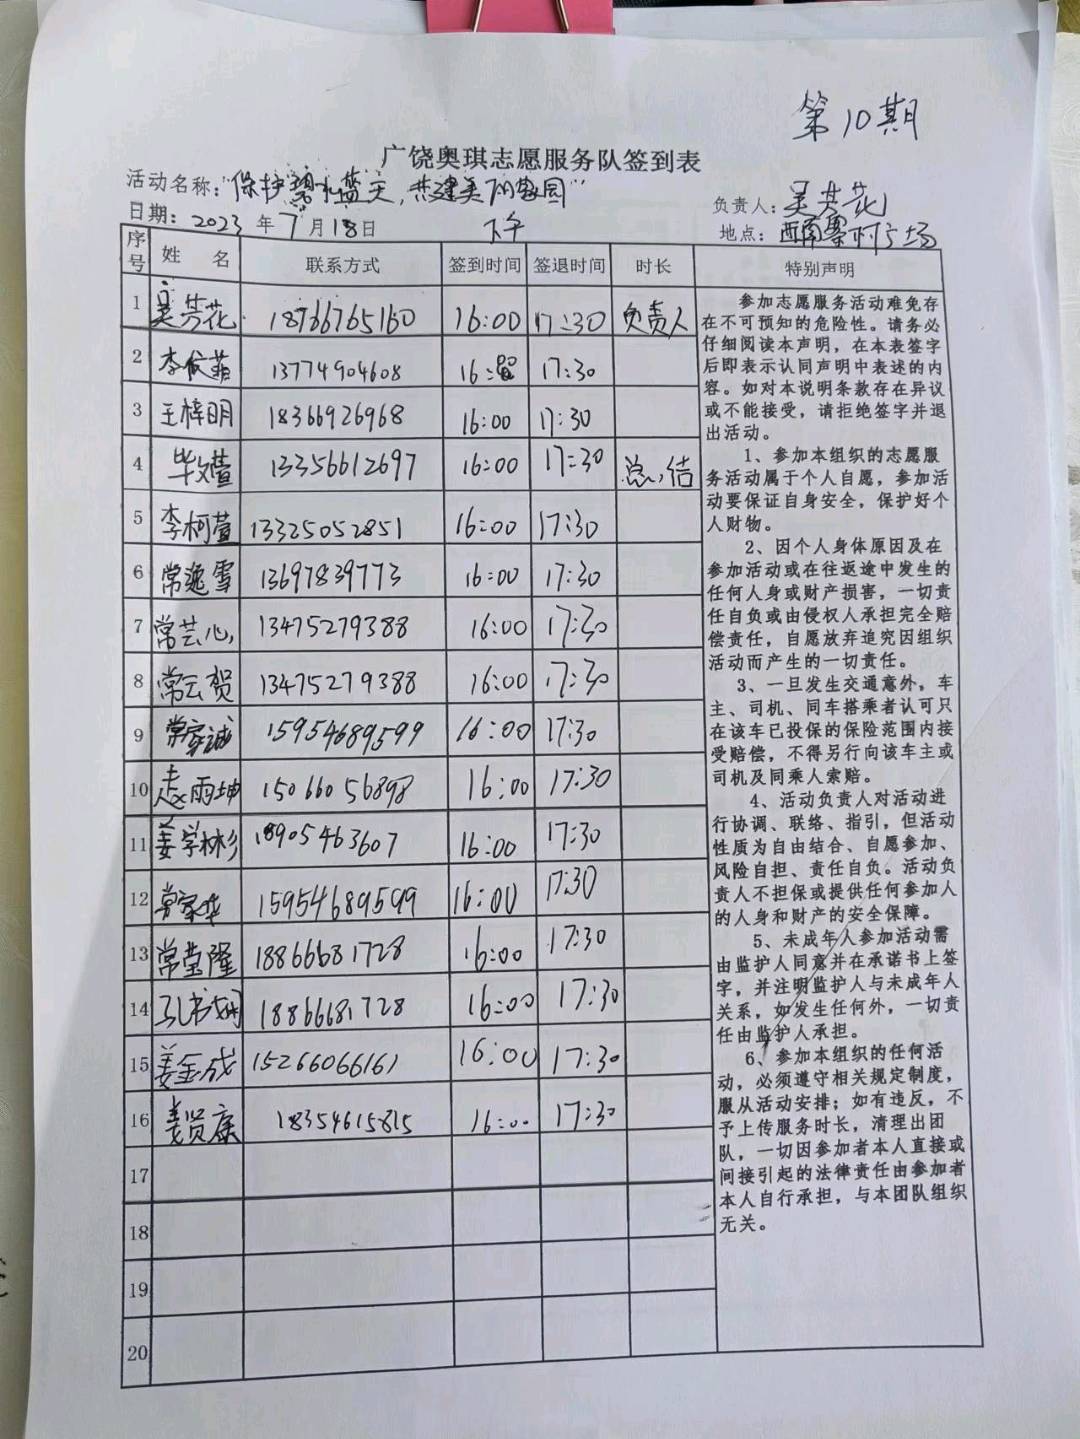 第10期
广饶奥琪志愿服务队签到表
活动名称:"保护碧水蓝天,共建美丽家园"
负责人:吴芳花
日期:2023年7月18日 下午
地点:西南寨村广场
序号 姓名 联系方式 签到时间 签退时间 时长 特别声明
1 吴芳花 18766765160 16:00 17:30 负责人
2 李俊菲 13774904608 16: 17:30
3 王梓明 18366926968 16:00 17:30
4 毕文萱 13356612697 16:00 17:30 总结
5 李柯萱 13325052851 16:00 17:30
6 常逸雪 13697839773 16:00 17:30
7 常芸心 13475279388 16:00 17:30
8 常云贺 13475279388 16:00 17:30
9 常家诚 15954689599 16:00 17:30
10 赵雨坤 15066056898 16:00 17:30
11 姜学彬 18905463607 16:00 17:30
12 常家华 15954689599 16:00 17:30
13 常莹隆 18866681728 16:00 17:30
14 孔书娴 18866681728 16:00 17:30
15 姜金成 15266066161 16:00 17:30
16 姜贤康 18354615815 16:00 17:30
17
18
19
20
参加志愿服务活动难免存
在不可预知的危险性。请务必
仔细阅读本声明,在本表签字
后即表示认同声明中表述的内
容。如对本说明条款存在异议
或不能接受,请拒绝签字并退
出活动。
1、参加本组织的志愿服
务活动属于个人自愿,参加活
动要保证自身安全,保护好个
人财物。
2、因个人身体原因及在
参加活动或在往返途中发生的
任何人身或财产损害,一切责
任自负或由侵权人承担完全赔
偿责任,自愿放弃追究因组织
活动而产生的一切责任。
3、一旦发生交通意外,车
主、司机、同车搭乘者认可只
在该车已投保的保险范围内接
受赔偿,不得另行向该车主或
司机及同乘人索赔。
4、活动负责人对活动进
行协调、联络、指引,但活动
性质为自由结合、自愿参加、
风险自担、责任自负。活动负
责人不担保或提供任何参加人
的人身和财产的安全保障。
5、未成年人参加活动需
由监护人同意并在承诺书上签
字,并注明监护人与未成年人
关系,如发生任何外,一切责
任由监护人承担。
6、参加本组织的任何活
动,必须遵守相关规定制度,
服从活动安排;如有违反,不
予上传服务时长,清理出团
队,一切因参加者本人直接或
间接引起的法律责任由参加者
本人自行承担,与本团队组织
无关。